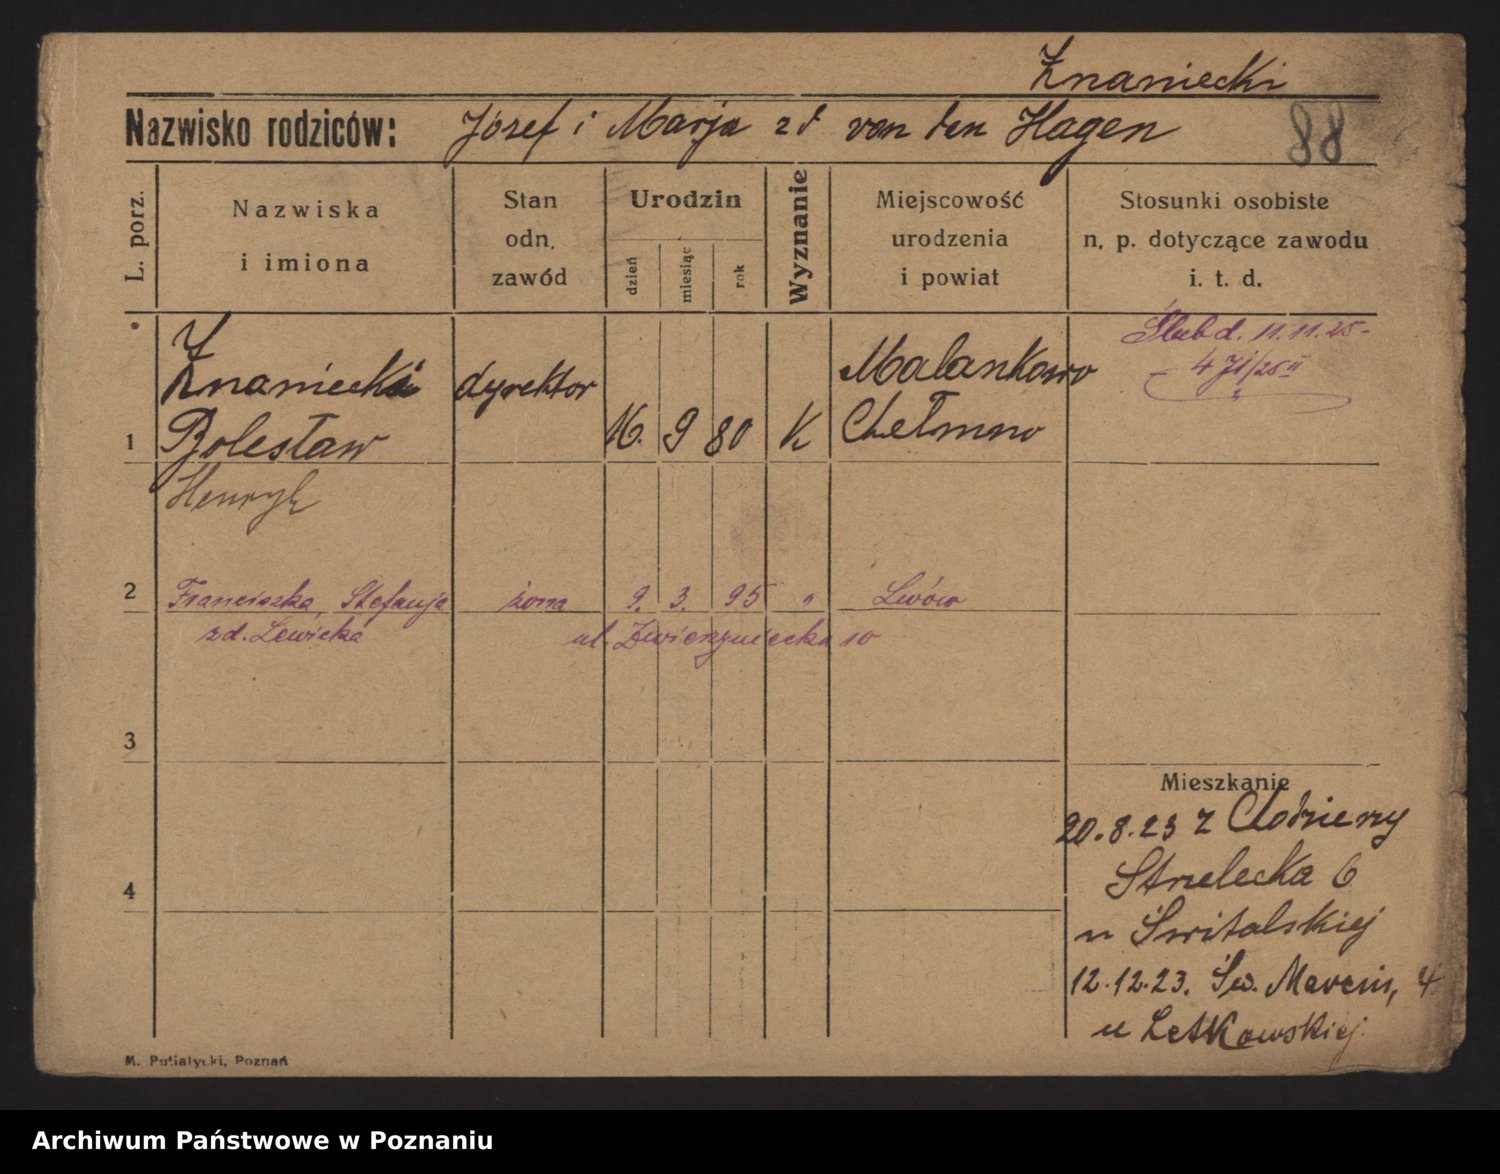 Znaniecki
Nazwisko rodziców: Józef i Marja zd von den Hagen 88
L. porz.
Nazwiska
i imiona
Stan
odn.
zawód
Urodzin
dzień
miesiąc
rok
Wyznanie
Miejscowość
urodzenia
i powiat
Stosunki osobiste
n. p. dotyczące zawodu
i. t. d.
Ślub d. 11.11.25-
Znaniecki dyrektor Malankowo
1 Bolesław 16. 9 80 K Chełmno
Henryk
2 Franciszka, Stefanja żona 9. 3. 95 " Lwów
zd. Lewicka ul. Zwierzyniecka 10
3
Mieszkanie
20.8.23 z Chodzierzy
4 Strzelecka 6
u Świtalskiej
12.12.23. Św. Marcin, 4
u Letkowskiej.
M. Putiatycki, Poznań
Archiwum Państwowe w Poznaniu